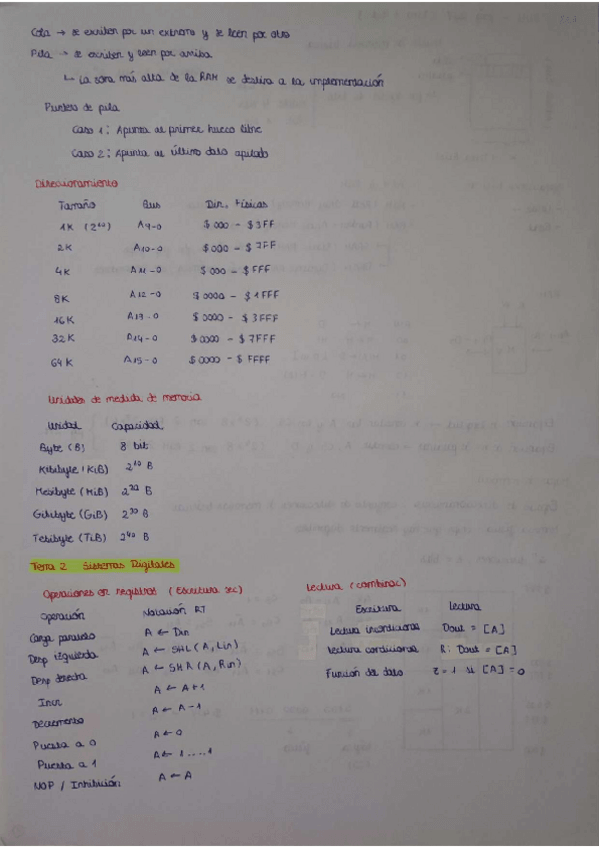 Cola → se escriben por un extremo y se leen por otro
Pila → se escriben y leen por arriba
↳ La zona más alta de la RAM se destina a la implementación
Puntero de pila
Caso 1: Apunta al primer hueco libre
Caso 2: Apunta al último dato apilado
Direccionamiento
Tamaño Bus Dir. Físicas
1K (2^10) A9-0 $000 - $3FF
2K A10-0 $000 - $7FF
4K A11-0 $000 - $FFF
8K A12-0 $0000 - $1FFF
16K A13-0 $0000 - $3FFF
32K A14-0 $0000 - $7FFF
64K A15-0 $0000 - $FFFF
Unidades de medida de memoria
Unidad Capacidad
Byte (B) 8 bit
Kibibyte (KiB) 2^10 B
Mebibyte (MiB) 2^20 B
Gibibyte (GiB) 2^30 B
Tebibyte (TiB) 2^40 B
Tema 2 Sistemas Digitales
Operaciones en registros (Escritura sec)
Operación Notación RT
Carga paralelo A ← Din
Desp izquierda A ← SHL (A, Lin)
Desp derecha A ← SHR (A, Rin)
Incr A ← A+1
Decremento A ← A-1
Puesta a 0 A ← 0
Puesta a 1 A ← 1....1
NOP / Inhibición A ← A
Lectura (combinac)
Escritura Lectura
Lectura incondicional Dout = [A]
Lectura condicional R: Dout = [A]
Función del dato z = 1 si [A] = 0